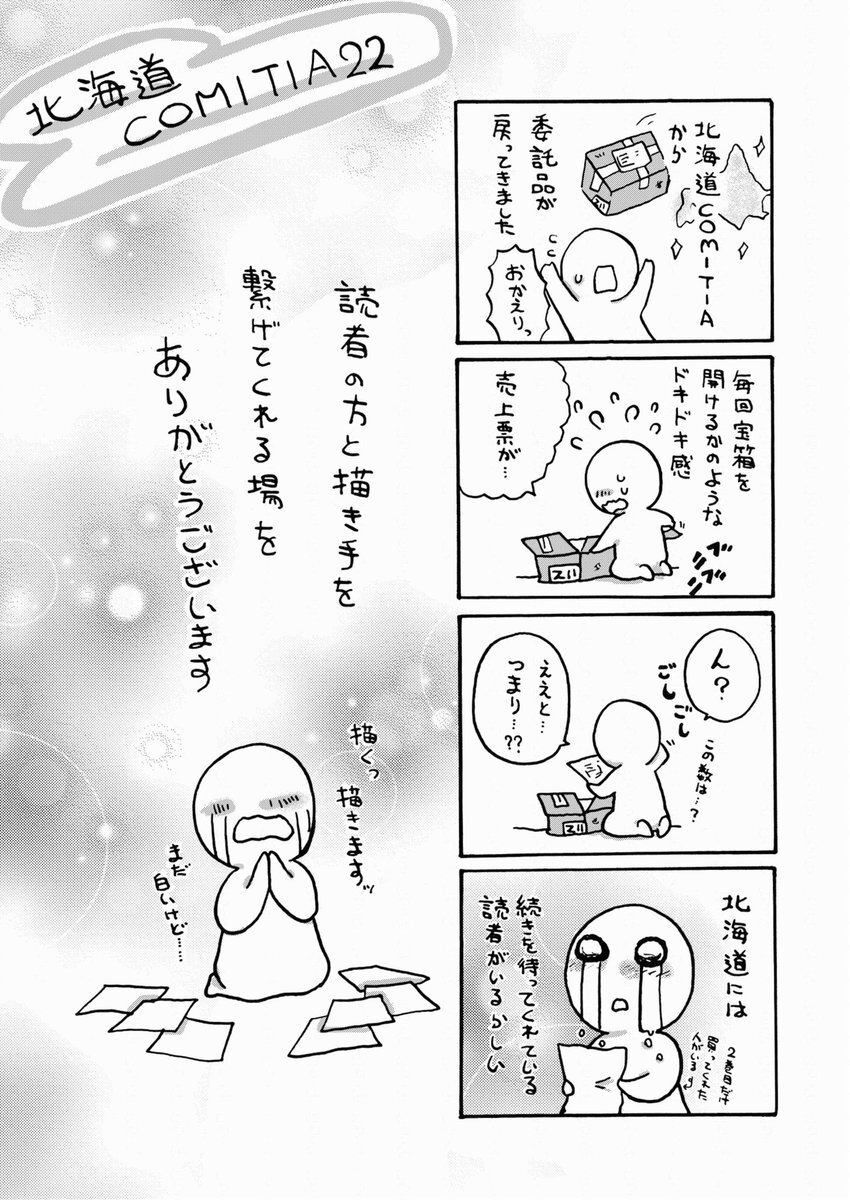 北海道
COMITIA22
北海道COMITIA
から
委託品が
戻ってきました
おかえりっ
毎回宝箱を
開けるかのような
ドキドキ感
売上票が…
ん?
ごしごし
この数は…?
ええと…
つまり…??
北海道には
続きを待ってくれている
読者がいるらしい
2巻目だけ
買ってくれた
人がいる
読者の方と描き手を
繋げてくれる場を
ありがとうございます
描くっ
描きますッ
まだ
白いけど……